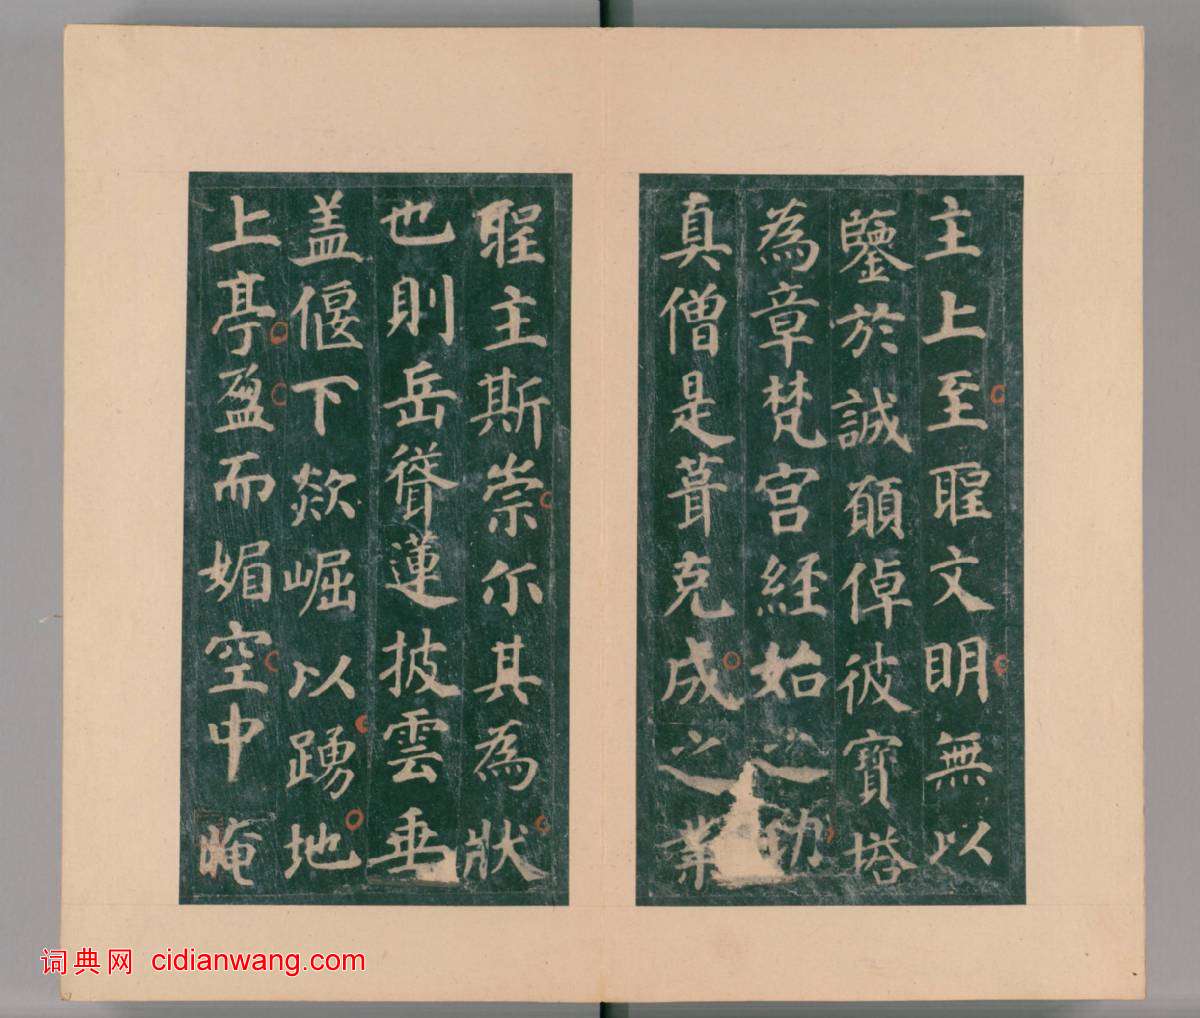 主上至聖文明無以
鑒於誠願倬彼寶塔
為章梵宮經始之功
真僧是葺克成之業
聖主斯崇尔其為狀
也則岳聳蓮披雲垂
盖偃下欻崛以踴地
上亭盈而媚空中晻
词典网 cidianwang.com